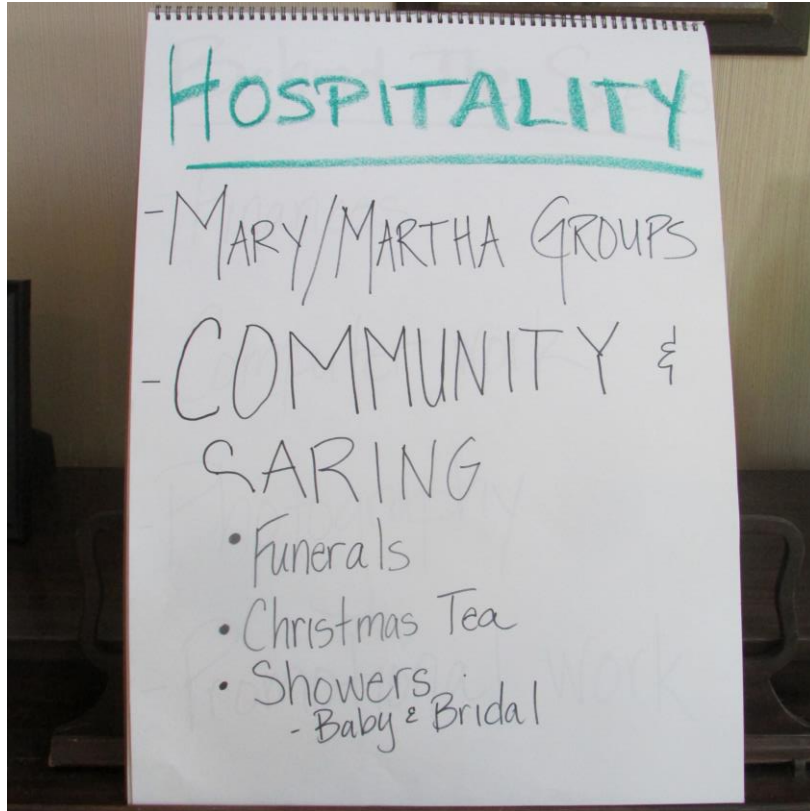 HOSPITALITY
- MARY/MARTHA GROUPS
- COMMUNITY &
CARING
• Funerals
• Christmas Tea
• Showers
- Baby & Bridal